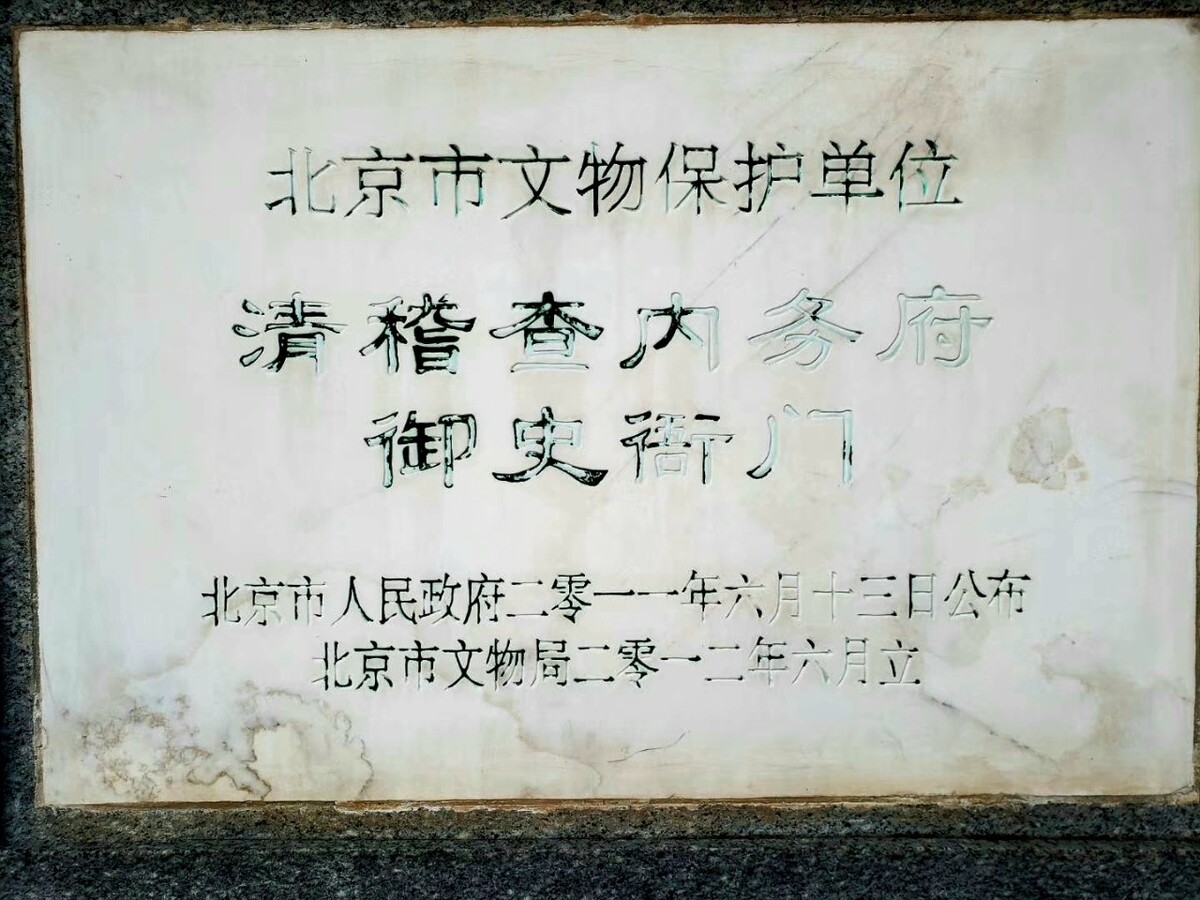 北京市文物保护单位
清稽查内务府
御史衙门
北京市人民政府二零一一年六月十三日公布
北京市文物局二零一二年六月立